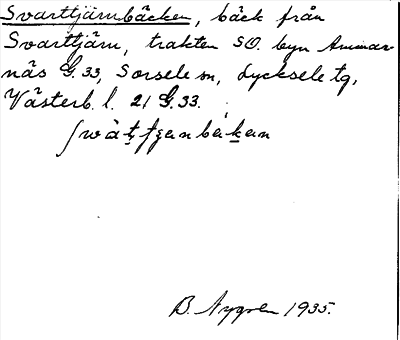 Svarttjärnbäcken, bäck från
Svarttjärn, trakten SO. byn Ammar-
näs G.33, Sorsele sn, Lycksele tg,
Västerb. l. 21 G.33.
B. Nygren 1935.